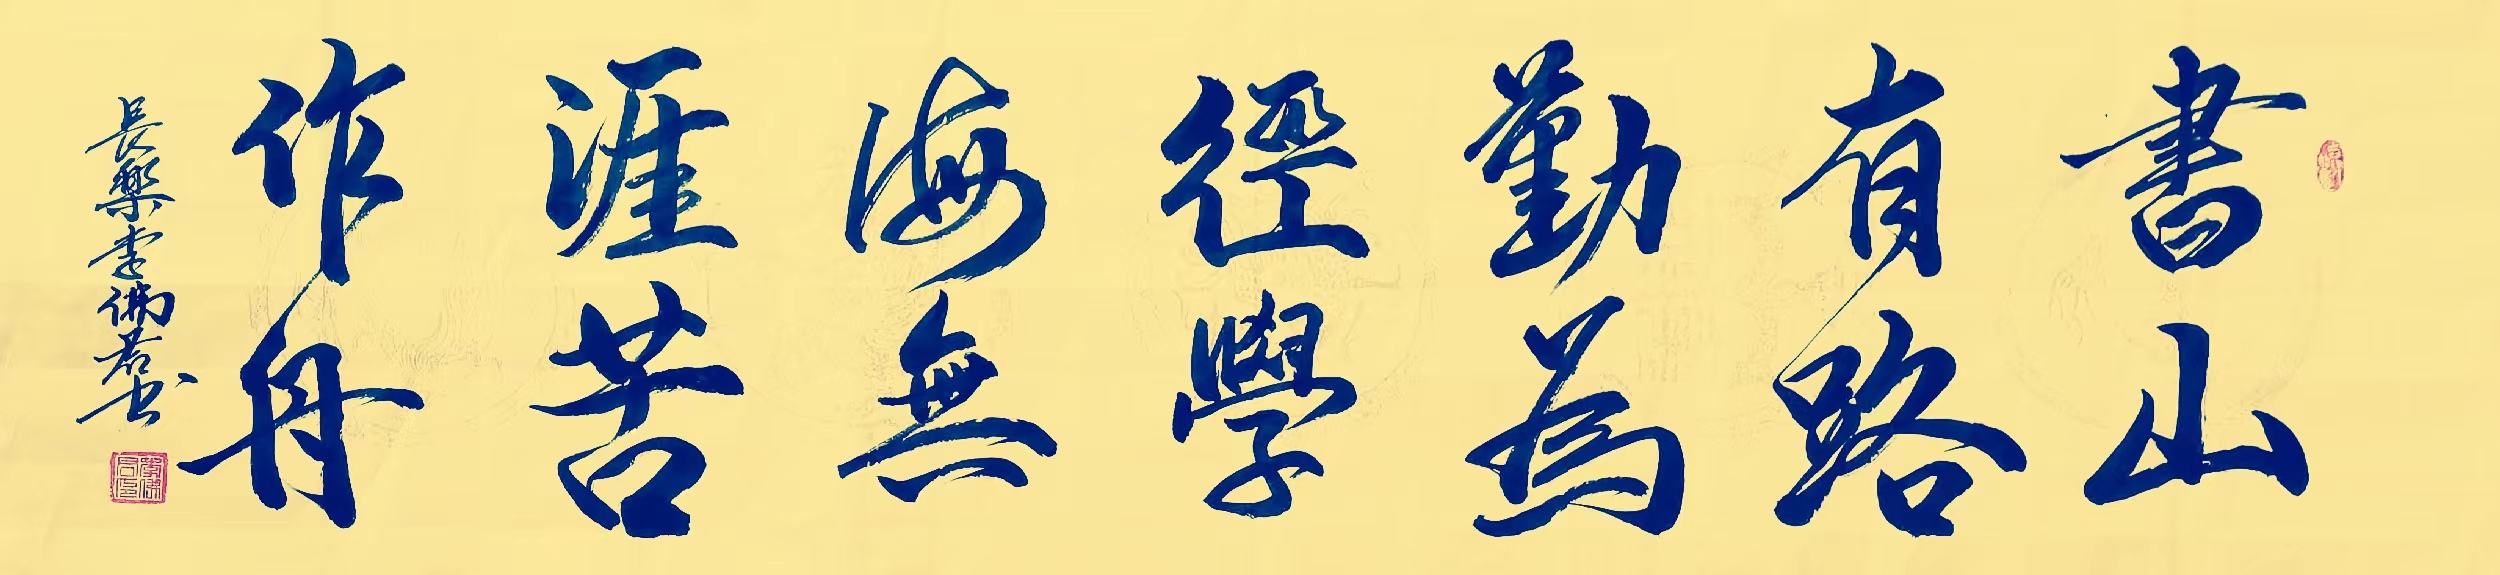 書山
有路
勤為
径學
海無
涯苦
作舟
長樂李佛君书